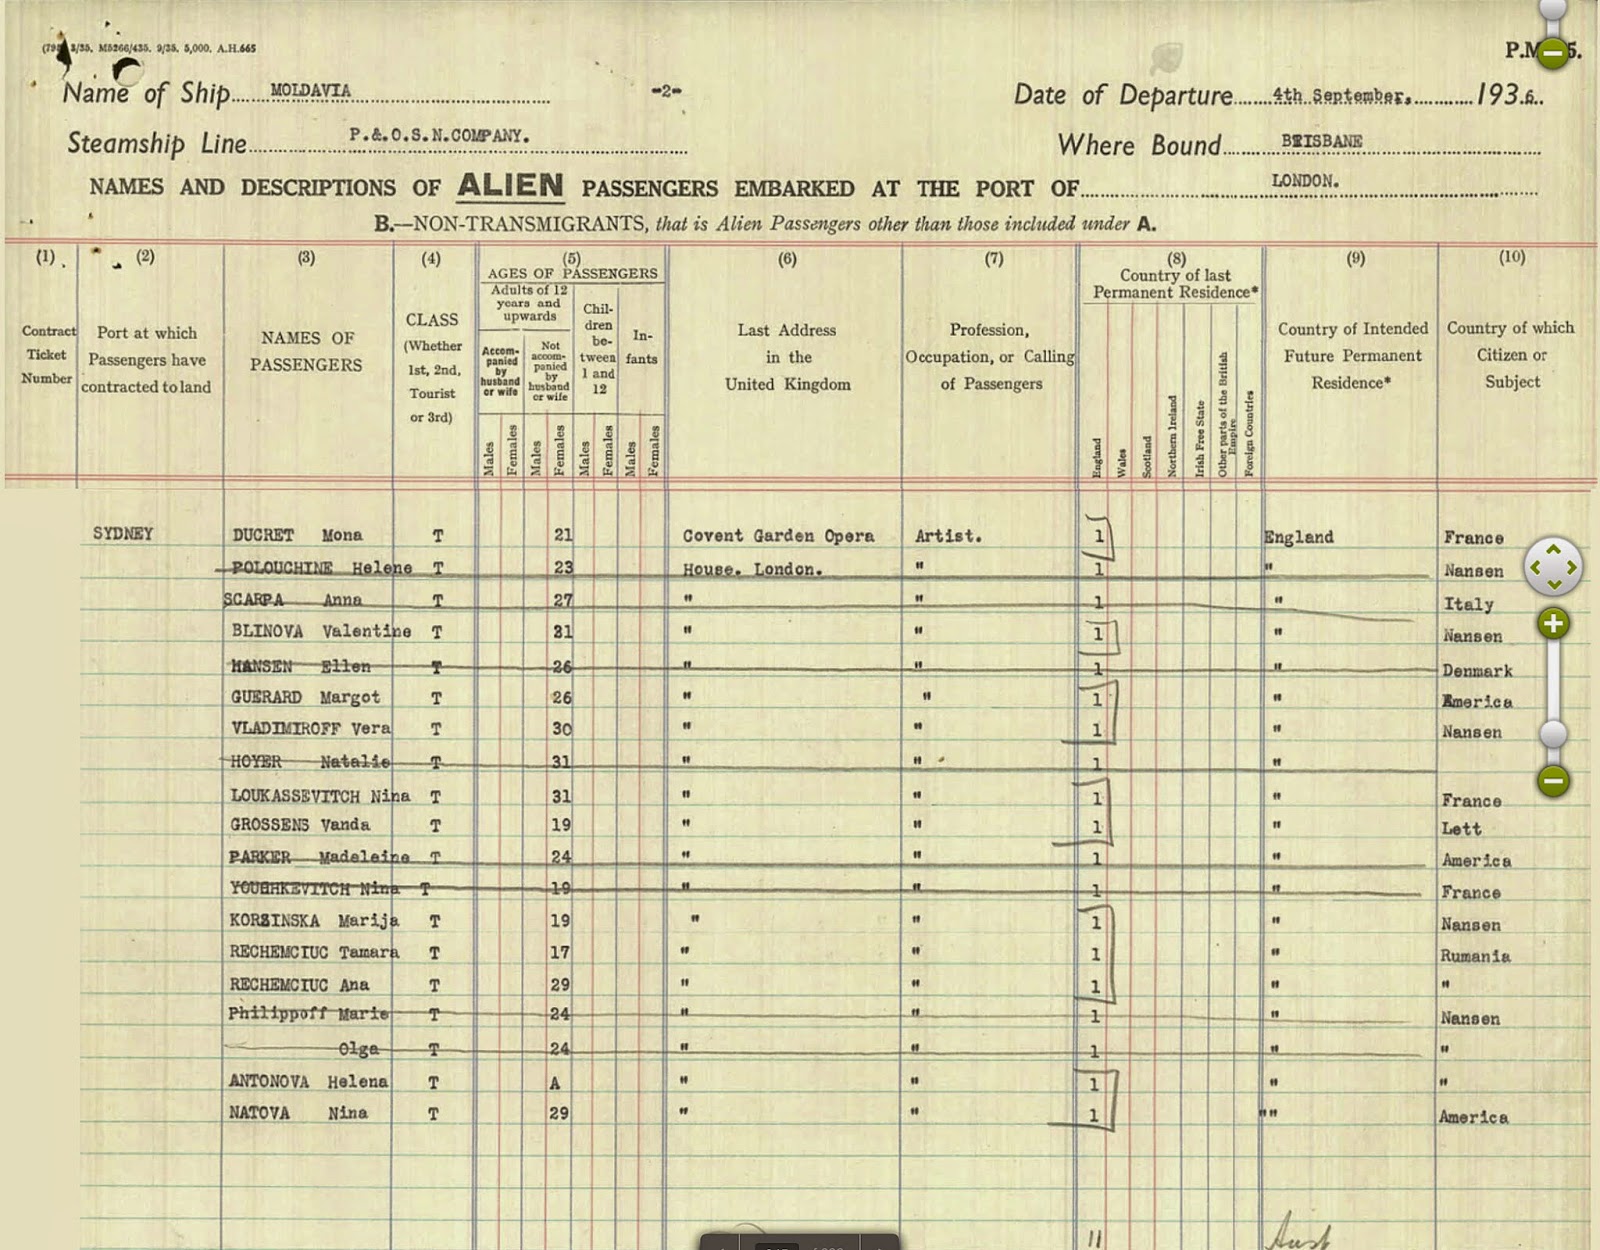 (79 3/35. M5266/435. 9/35. 5,000. A.H.665
P.M 5.
Name of Ship MOLDAVIA -2- Date of Departure 4th September, 1936.
Steamship Line P.&.O.S.N.COMPANY. Where Bound BRISBANE
NAMES AND DESCRIPTIONS OF ALIEN PASSENGERS EMBARKED AT THE PORT OF LONDON.
B.—NON-TRANSMIGRANTS, that is Alien Passengers other than those included under A.
(1) Contract Ticket Number
(2) Port at which Passengers have contracted to land
(3) NAMES OF PASSENGERS
(4) CLASS (Whether 1st, 2nd, Tourist or 3rd)
(5) AGES OF PASSENGERS
Adults of 12 years and upwards
Accompanied by husband or wife
Not accompanied by husband or wife
Children between 1 and 12
Infants
Males Females Males Females Males Females Males Females
(6) Last Address in the United Kingdom
(7) Profession, Occupation, or Calling of Passengers
(8) Country of last Permanent Residence*
England Wales Scotland Northern Ireland Irish Free State Other parts of the British Empire Foreign Countries
(9) Country of Intended Future Permanent Residence*
(10) Country of which Citizen or Subject
SYDNEY DUCRET Mona T 21 Covent Garden Opera Artist. 1 England France
POLOUCHINE Helene T 23 House. London. " 1 " Nansen
SCARPA Anna T 27 " " 1 " Italy
BLINOVA Valentine T 21 " " 1 " Nansen
HANSEN Ellen T 26 " " 1 " Denmark
GUERARD Margot T 26 " " 1 " America
VLADIMIROFF Vera T 30 " " 1 " Nansen
HOYER Natalie T 31 " " 1 "
LOUKASSEVITCH Nina T 31 " " 1 " France
GROSSENS Vanda T 19 " " 1 " Lett
PARKER Madeleine T 24 " " 1 " America
YOUSHKEVITCH Nina T 19 " " 1 " France
KORSINSKA Marija T 19 " " 1 " Nansen
RECHEMCIUC Tamara T 17 " " 1 " Rumania
RECHEMCIUC Ana T 29 " " 1 " "
Philippoff Marie T 24 " " 1 " Nansen
Olga T 24 " " 1 " "
ANTONOVA Helena T A " " 1 " "
NATOVA Nina T 29 " " 1 "" America
11 Aust